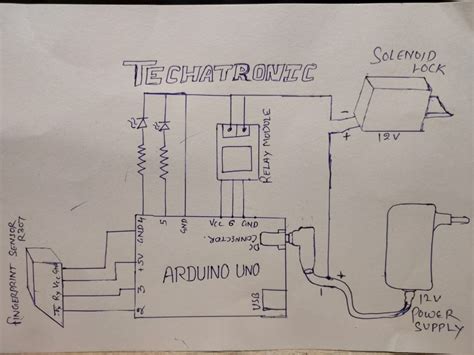 TECHATRONIC
SOLENOID
LOCK
-
+
12V
RELAY MODULE
GND 4
5
GND
VCC 6 GND
DC
CONNECTOR.
FINGERPRINT SENSOR
R307
Tx Rx Vcc Gnd
+3V
3
2
ARDUINO UNO
USB
-
+
12V
POWER
SUPPLY